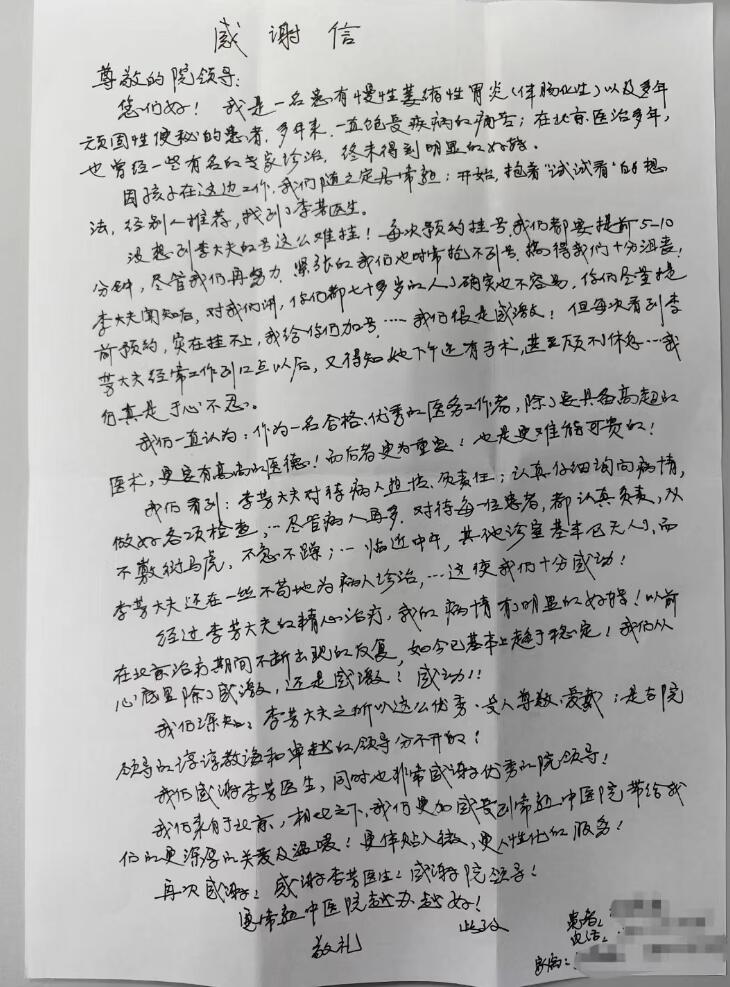 感谢信
尊敬的院领导:
您们好! 我是一名患有慢性萎缩性胃炎(伴肠化生)以及多年
顽固性便秘的患者,多年来,一直饱受疾病的痛苦;在北京医治多年,
也曾经一些有名的专家诊治,终未得到明显的好转。
因孩子在这边工作,我们随之定居常熟;开始,抱着“试试看”的想
法,经别人推荐,找到了李芳医生。
没想到李大夫的号这么难挂! 每次预约挂号,我们都要提前5-10
分钟,尽管我们再努力,紧张的我们也时常抢不到号,搞得我们十分沮丧!
李大夫闻知后,对我们讲,你们都七十多岁的人了确实也不容易,你们尽量提
前预约,实在挂不上,我给你们加号……我们很是感激! 但每次看到李
芳大夫经常工作到12点以后,又得知她下午还有手术,甚至顾不休息…我
们真是于心不忍。
我们一直认为:作为一名合格、优秀的医务工作者,除了要具备高超的
医术,更要有高尚的医德!而后者更为重要! 也是更难能可贵的!
我们看到:李芳大夫对待病人热情、负责任;认真仔细询问病情,
做好各项检查,…尽管病人再多,对待每一位患者,都认真负责,从
不敷衍马虎,不急不躁;…临近中午,其他诊室基本已无人了,而
李芳大夫还在一丝不苟地为病人诊治,…这使我们十分感动!
经过李芳大夫的精心治疗,我的病情有了明显的好转!以前
在北京治疗期间不断出现的反复,如今已基本上趋于稳定! 我们从
心底里除了感激,还是感激! 感动!!
我们深知:李芳大夫之所以这么优秀、受人尊敬、爱戴;是与院
领导的谆谆教诲和卓越的领导分不开的!
我们感谢李芳医生,同时也非常感谢优秀的院领导!
我们来自于北京,相比之下,我们更加感受到常熟中医院带给我
们的更深厚的关爱及温暖! 更体贴入微,更人性化的服务!
再次感谢! 感谢李芳医生! 感谢院领导!
愿常熟中医院越办越好!
此致
敬礼
患者:
电话:
家属: